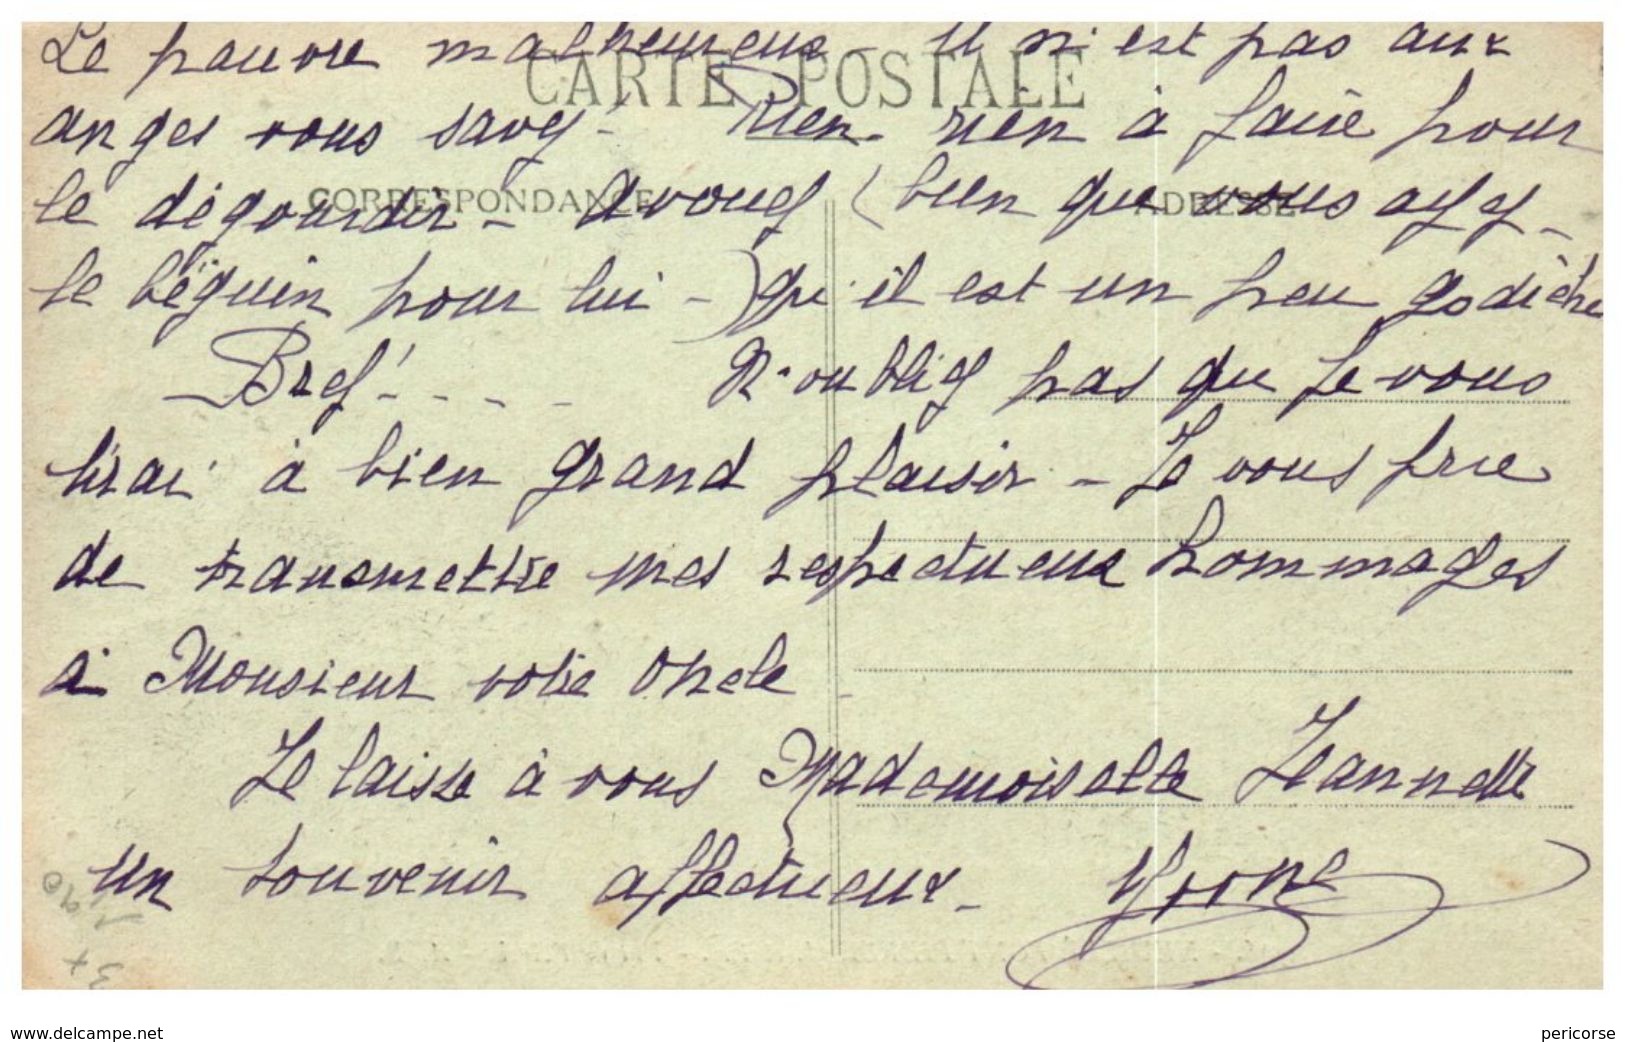 Le pauvre malheureux il n'est pas aux
CARTE POSTALE
anges vous savez - Rien - rien à faire pour
CORRESPONDANCE
ADRESSE
le dégourdir - Avouez (bien que vous ayez -
le béguin pour lui -) qu'il est un peu godiche
Bref! - - - - N'oubliez pas que je vous
lirai à bien grand plaisir - Je vous prie
de transmettre mes respectueux hommages
à Monsieur votre Oncle -
Je laisse à vous Mademoiselle Jeannette
un souvenir affectueux - Yvonne
190
3+
www.delcampe.net
pericorse